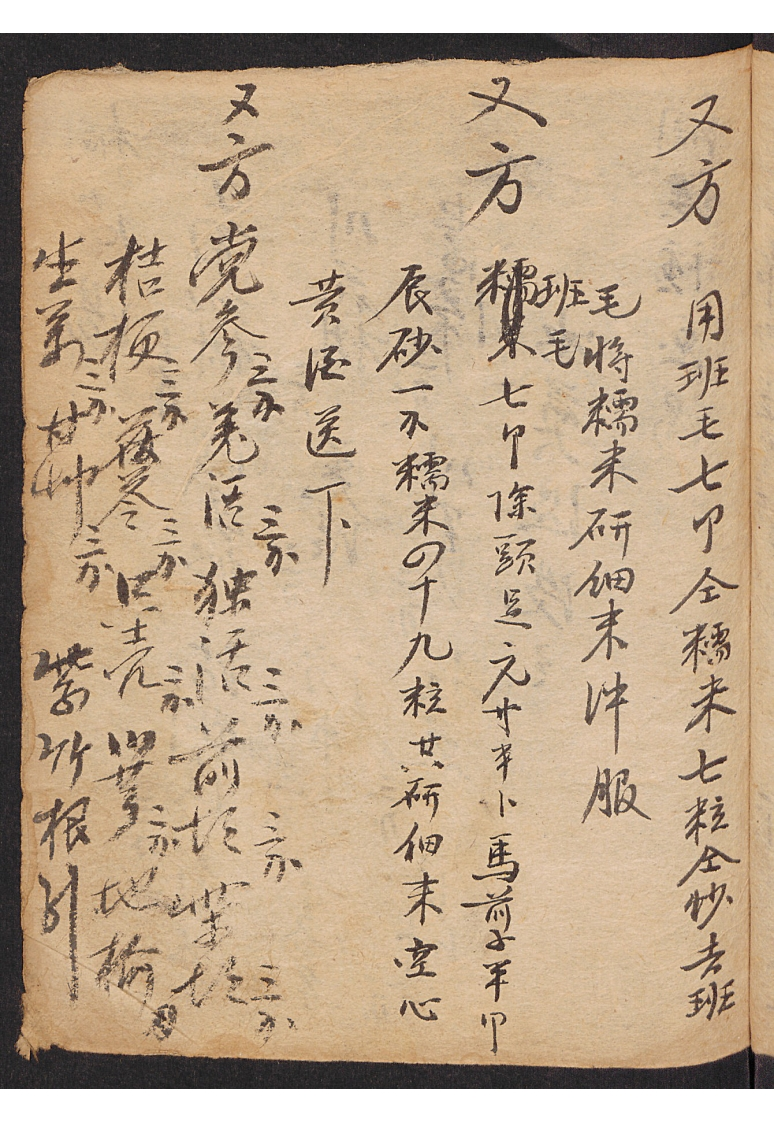 又方 用班毛七卩仝糯米七粒仝炒去班
毛将糯米研细末冲服
又方 班毛七卩除頭足元廿半卜馬前子半卩
辰砂一不糯米四十九粒共研细末空心
黄酒送下
又方 党参三分羌活三分独活三分前胡三分柴胡三分
桔梗三分茯苓三分只壳三分川芎三分地榆
生姜三分甘草三分 紫竹根引